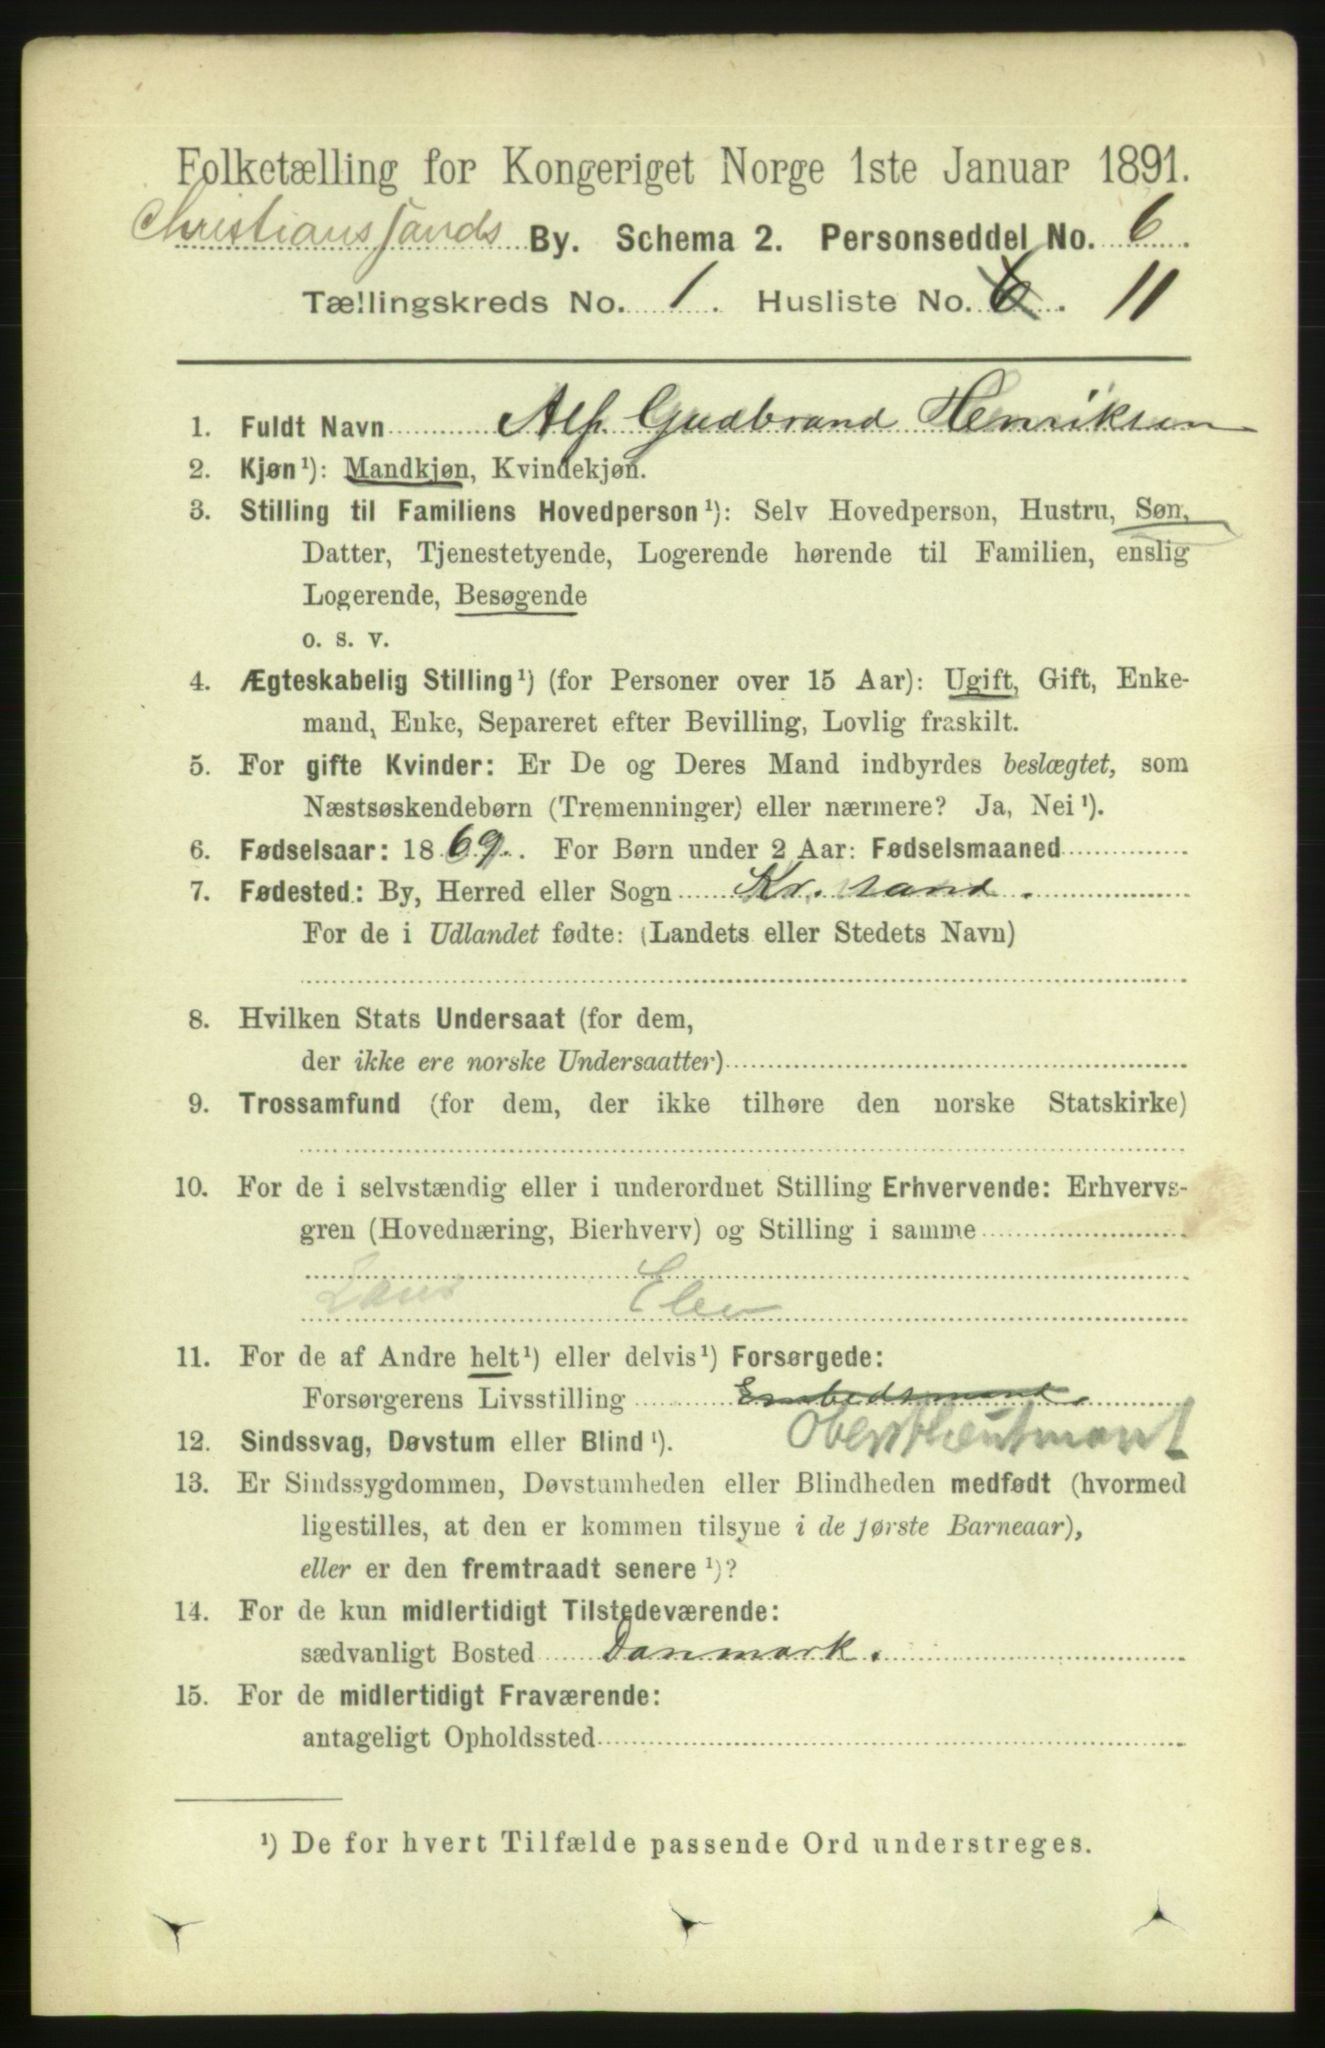 Folketælling for Kongeriget Norge 1ste Januar 1891.
Christianssands By. Schema 2. Personseddel No. 6.
Tællingskreds No. 1. Husliste No. 6. 11
1. Fuldt Navn Alf. Gudbrand Henriksen
2. Kjøn¹): Mandkjøn, Kvindekjøn.
3. Stilling til Familiens Hovedperson¹): Selv Hovedperson, Hustru, Søn,
Datter, Tjenestetyende, Logerende hørende til Familien, enslig
Logerende, Besøgende
o. s. v.
4. Ægteskabelig Stilling¹) (for Personer over 15 Aar): Ugift, Gift, Enke-
mand, Enke, Separeret efter Bevilling, Lovlig fraskilt.
5. For gifte Kvinder: Er De og Deres Mand indbyrdes beslægtet, som
Næstsøskendebørn (Tremenninger) eller nærmere? Ja, Nei¹).
6. Fødselsaar: 1869. For Børn under 2 Aar: Fødselsmaaned
7. Fødested: By, Herred eller Sogn Kr.sand.
For de i Udlandet fødte: (Landets eller Stedets Navn)
8. Hvilken Stats Undersaat (for dem,
der ikke ere norske Undersaatter)
9. Trossamfund (for dem, der ikke tilhøre den norske Statskirke)
10. For de i selvstændig eller i underordnet Stilling Erhvervende: Erhvervs-
gren (Hovednæring, Bierhverv) og Stilling i samme
Elev
11. For de af Andre helt¹) eller delvis¹) Forsørgede:
Forsørgerens Livsstilling Embedsmand.
12. Sindssvag, Døvstum eller Blind¹). Oberstlieutnant
13. Er Sindssygdommen, Døvstumheden eller Blindheden medfødt (hvormed
ligestilles, at den er kommen tilsyne i de første Barneaar),
eller er den fremtraadt senere¹)?
14. For de kun midlertidigt Tilstedeværende:
sædvanligt Bosted Danmark.
15. For de midlertidigt Fraværende:
antageligt Opholdssted
¹) De for hvert Tilfælde passende Ord understreges.